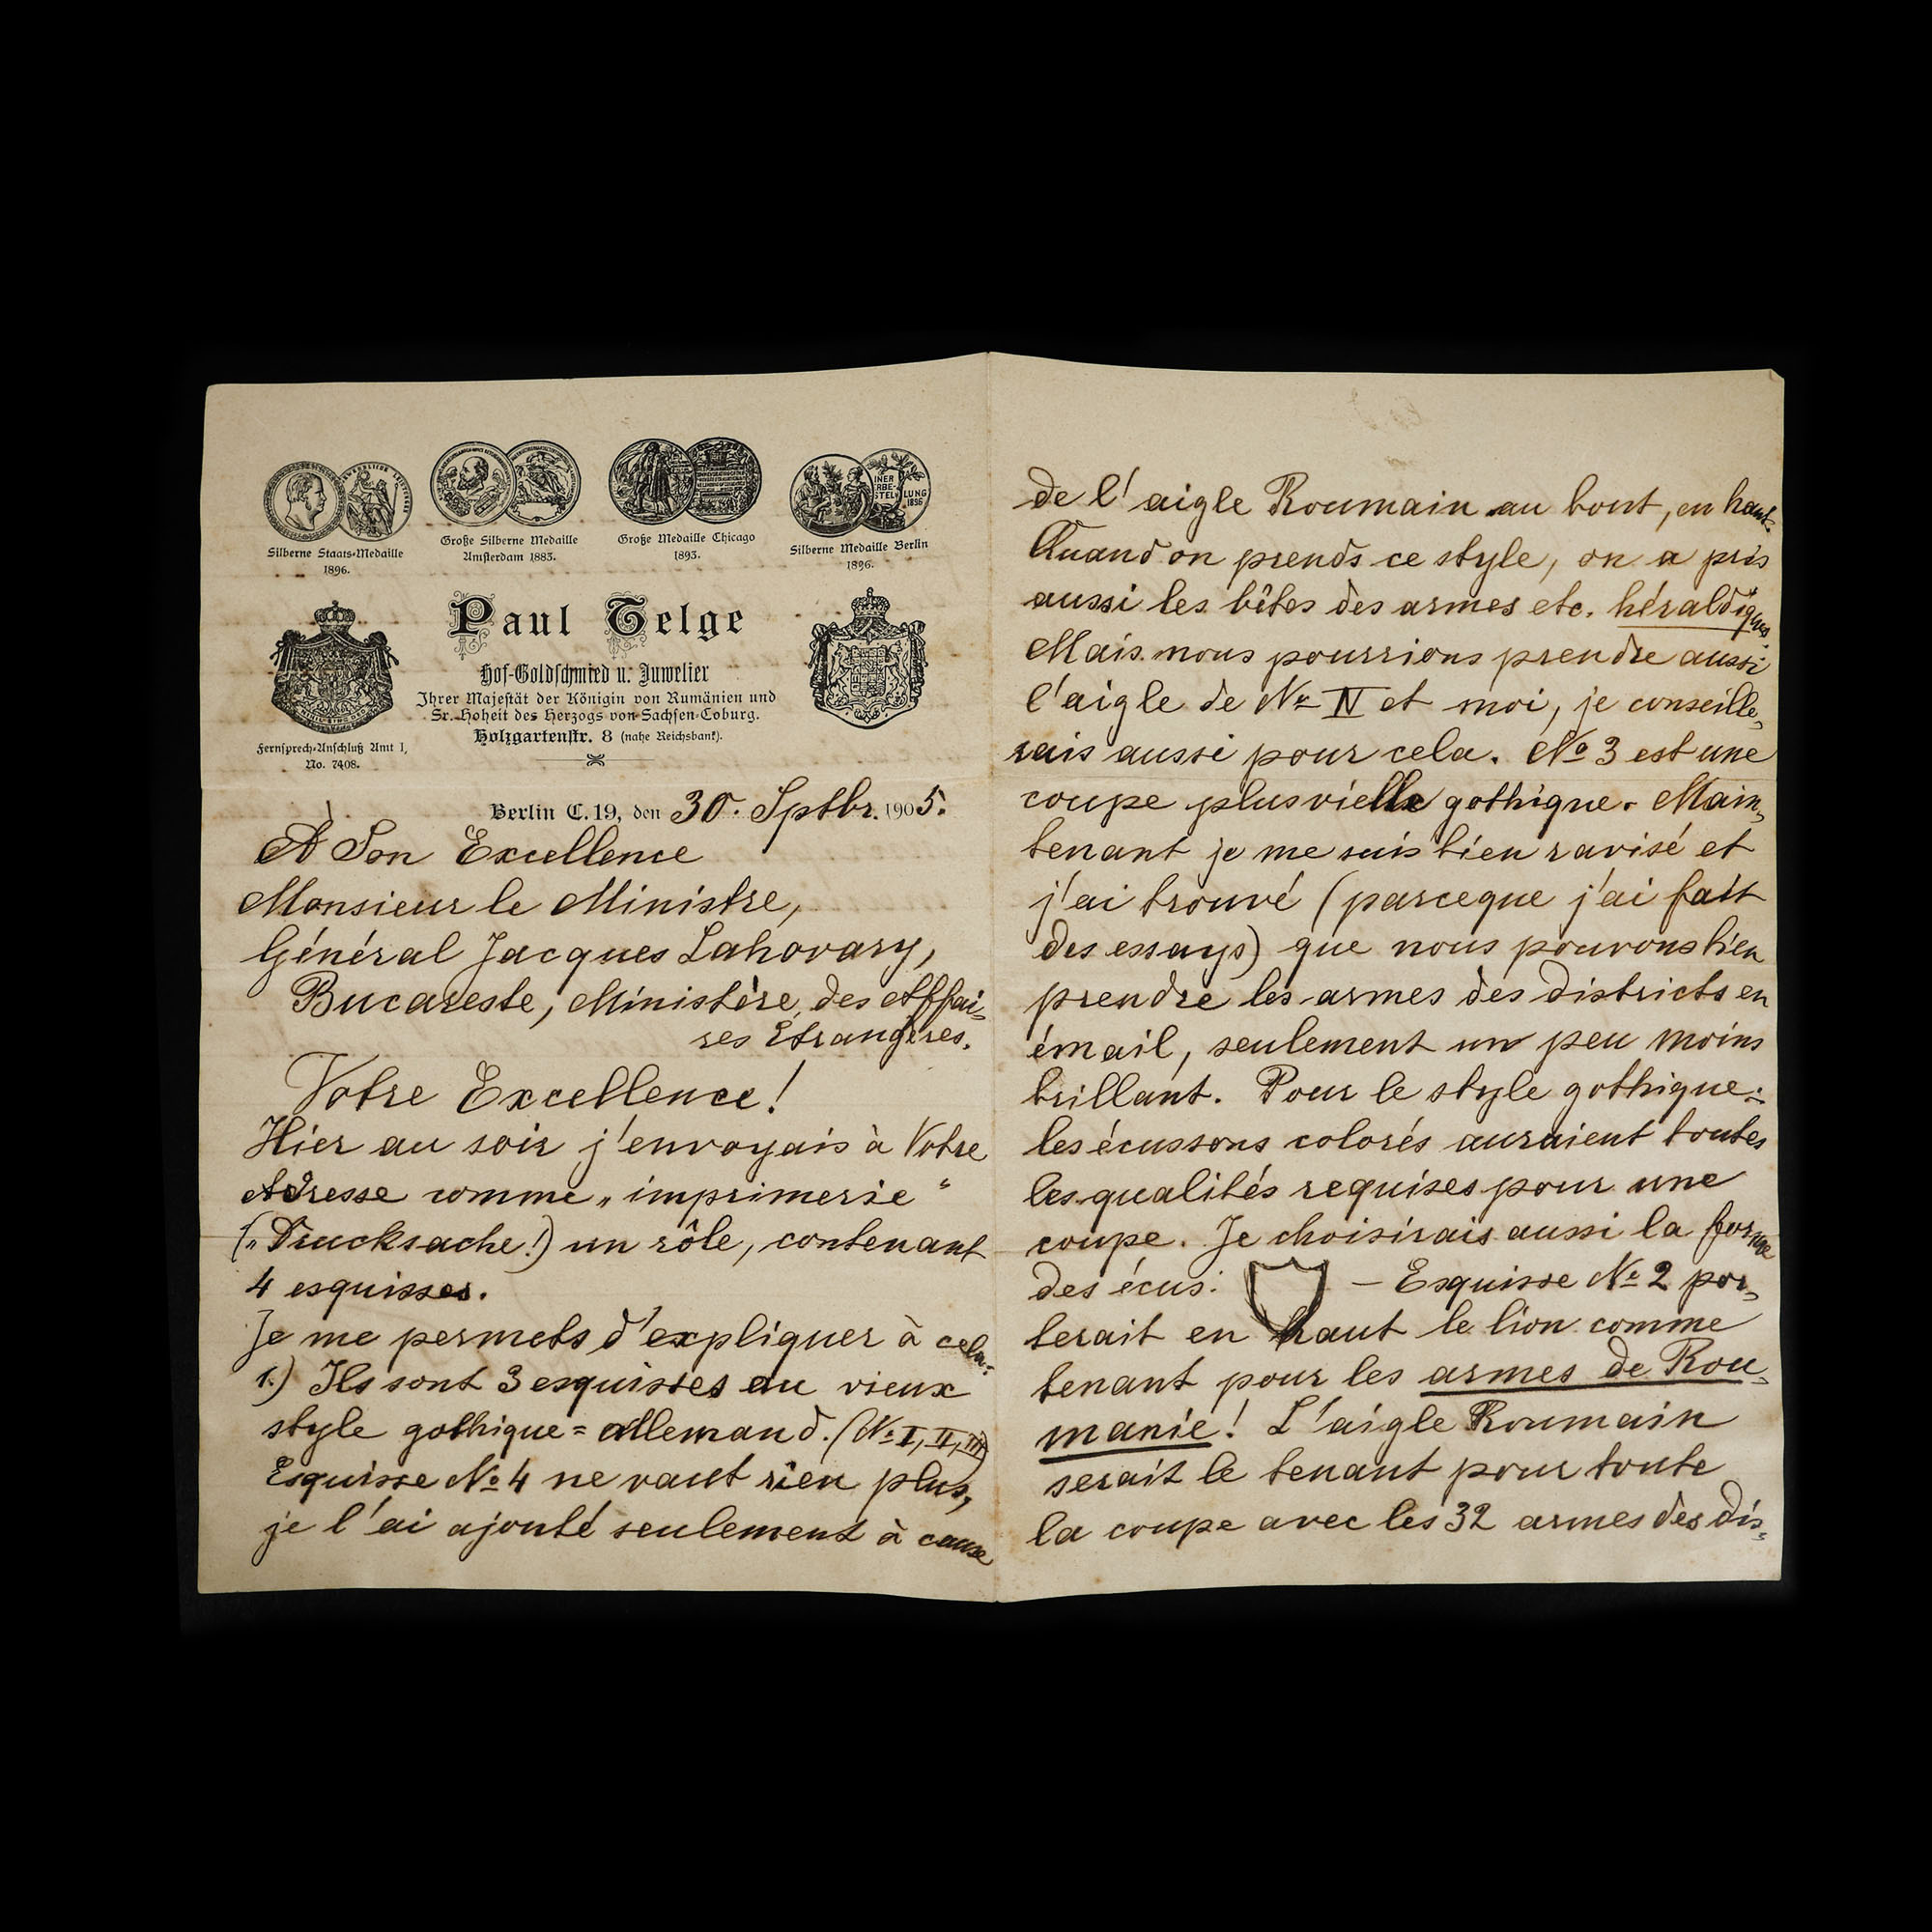 Silberne Staats-Medaille
1896.
Große Silberne Medaille
Amsterdam 1883.
Große Medaille Chicago
1893.
INER
RBE
STEL LUNG
1896
Silberne Medaille Berlin
1896.
Paul Telge
Hof-Goldschmied u. Juwelier
Ihrer Majestät der Königin von Rumänien und
Sr. Hoheit des Herzogs von Sachsen-Coburg.
Holzgartenstr. 8 (nahe Reichsbank).
Fernsprech-Anschluß Amt I,
No. 7408.
Berlin C. 19, den 30. Sptbr. 1905.
À Son Excellence
Monsieur le Ministre,
Général Jacques Lahovary,
Bucareste, Ministère des Affai-
res Étrangères.
Votre Excellence!
Hier au soir j'envoyais à Votre
Adresse comme „imprimerie"
(„Drucksache!) un rôle, contenant
4 esquisses.
Je me permets d'expliquer à cela:
1.) Ils sont 3 esquisses au vieux
style gothique=allemand. (No I, II, III)
Esquisse No 4 ne vaut rien plus,
je l'ai ajouté seulement à cause
de l'aigle Roumain au bout, en haut.
Quand on prends ce style, on a pris
aussi les bêtes des armes etc. héraldiques
Mais nous pourrions prendre aussi
l'aigle de No IV et moi, je conseille-
rais aussi pour cela. No 3 est une
coupe plus vielle gothique. Main-
tenant je me suis bien ravisé et
j'ai trouvé (parceque j'ai fait
des essays) que nous pouvons bien
prendre les armes des districts en
émail, seulement un peu moins
brillant. Pour le style gothique:
les écussons colorés auraient toutes
les qualités requises pour une
coupe. Je choisirais aussi la forme
des écus: — Esquisse No 2 por-
terait en haut le lion comme
tenant pour les armes de Rou-
manie! L'aigle Roumain
serait le tenant pour toute
la coupe avec les 32 armes des dis-